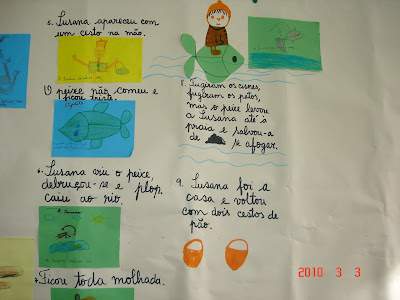 5. Susana apareceu com
um cesto na mão.
O peixe não comeu e
ficou triste.
6. Susana viu o peixe,
debruçou-se e plop,
caiu ao rio.
7. Ficou toda molhada.
8. Fugiram os cisnes,
fugiram os patos,
mas o peixe levou
a Susana até à
praia e salvou-a
de se afogar.
9. Susana foi a
casa e voltou
com dois cestos de
pão.
2010 3 3